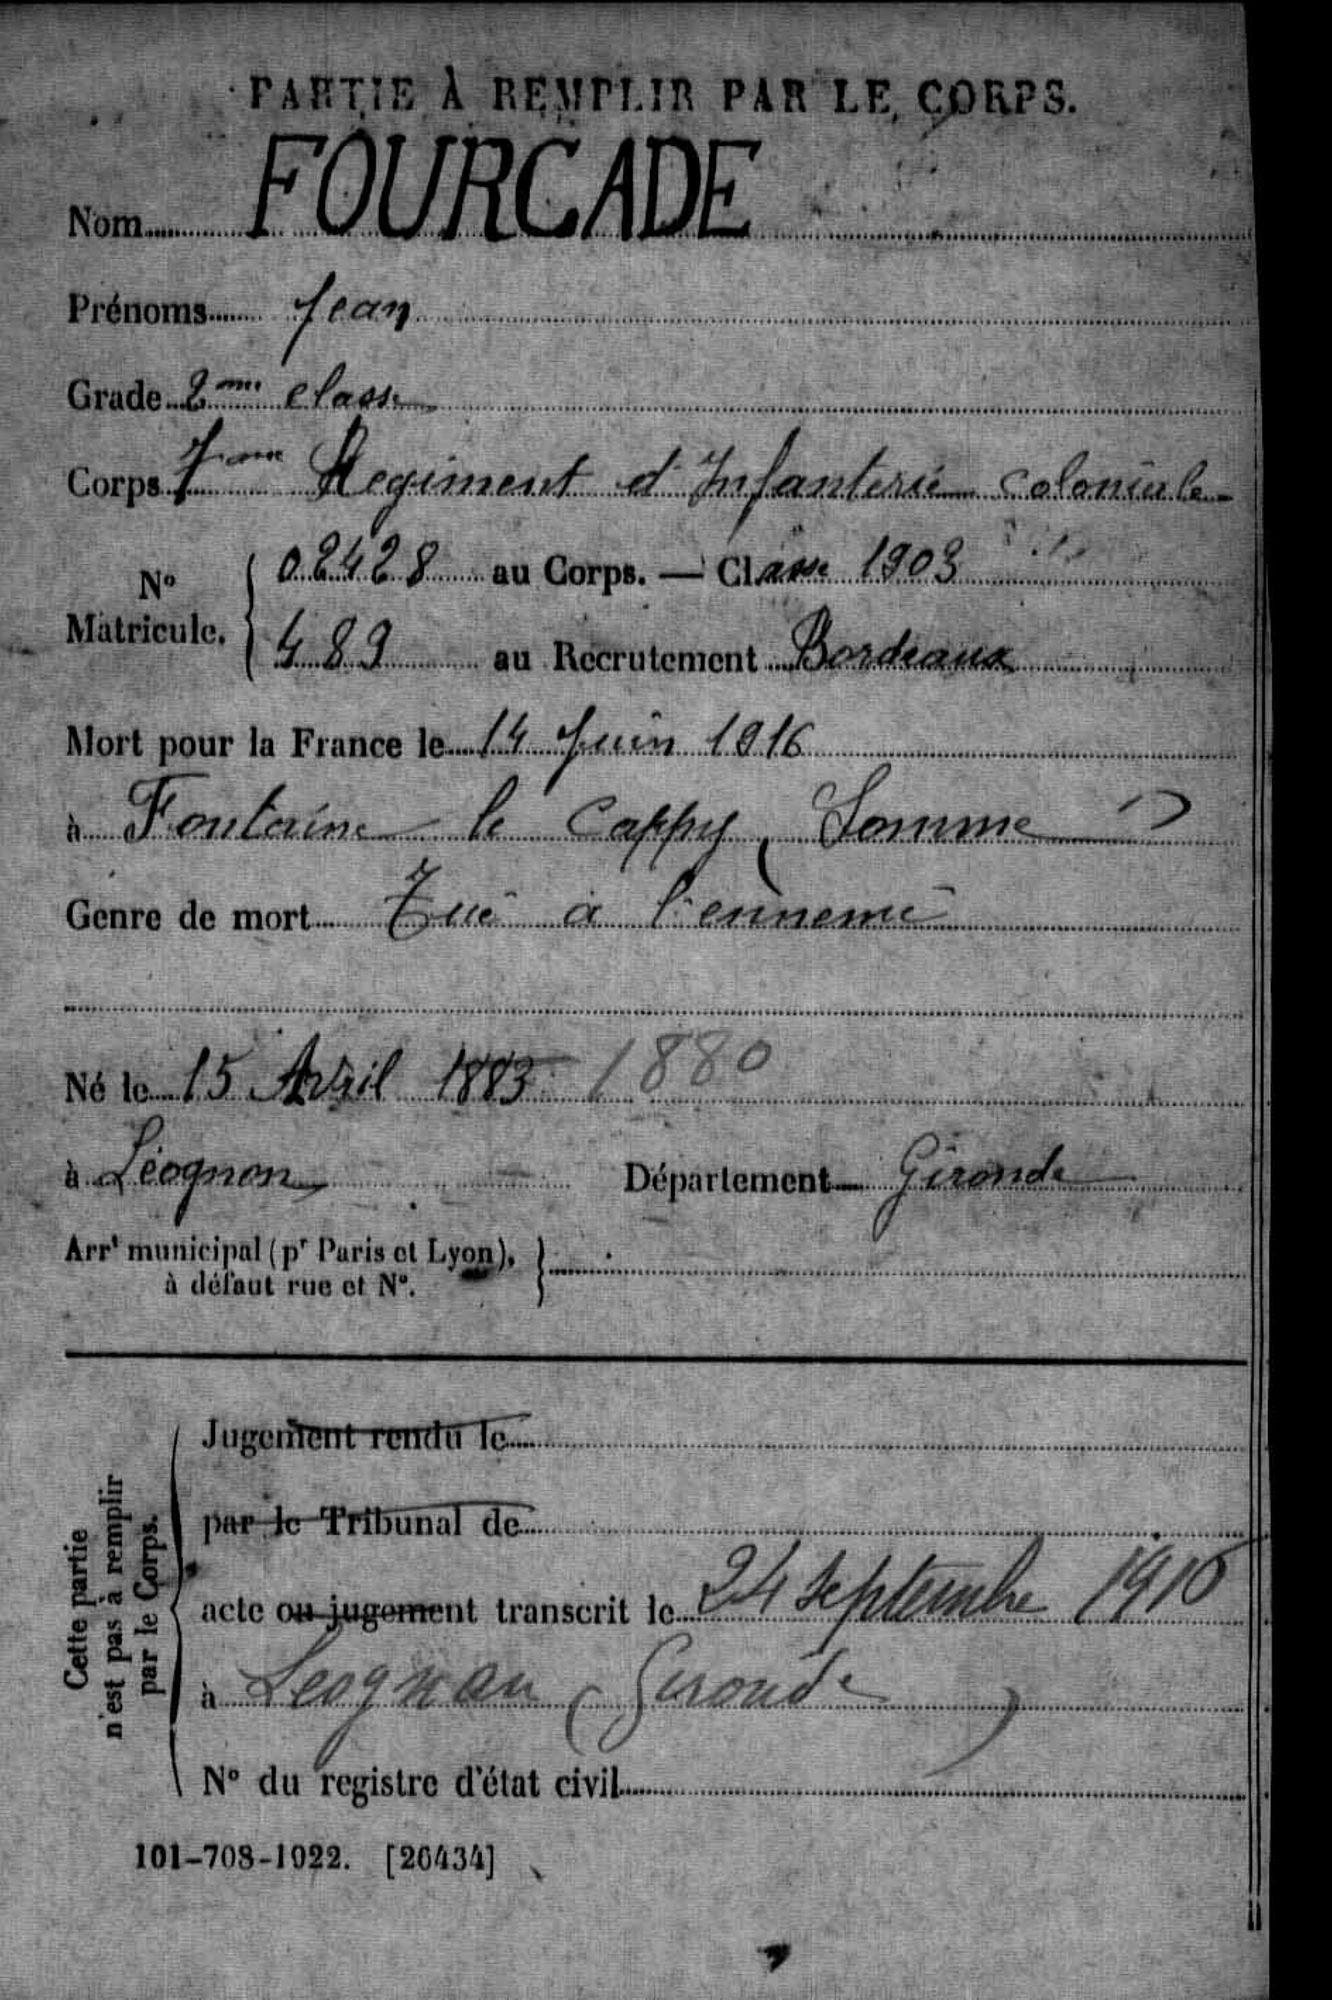 PARTIE À REMPLIR PAR LE CORPS.
Nom FOURCADE
Prénoms Jean
Grade 2me classe
Corps 7me Regiment d'Infanterie coloniale
N° Matricule. { 02428 au Corps. — Classe 1903
489 au Recrutement Bordeaux
Mort pour la France le 14 Juin 1916
à Fontaine le Cappy, Somme
Genre de mort Tué à l'ennemi
Né le 15 Avril 1883 1880
à Léognon Département Gironde
Arrt municipal (pr Paris et Lyon), à défaut rue et N°. }
Cette partie n'est pas à remplir par le Corps.
Jugement rendu le
par le Tribunal de
acte ou jugement transcrit le 24 septembre 1916
à Leognan (Gironde)
N° du registre d'état civil
101-708-1922. [26434]